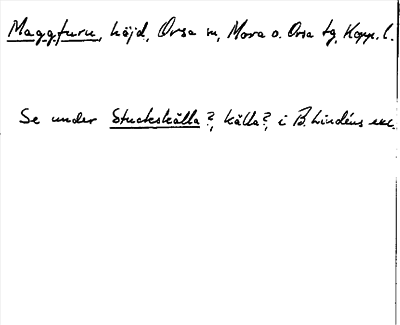 Maggfuru, höjd, Orsa sn, Mora o. Orsa tg, Kopp. l.
Se under Stuckskälla?, källa?, i B. Lindéns exc.